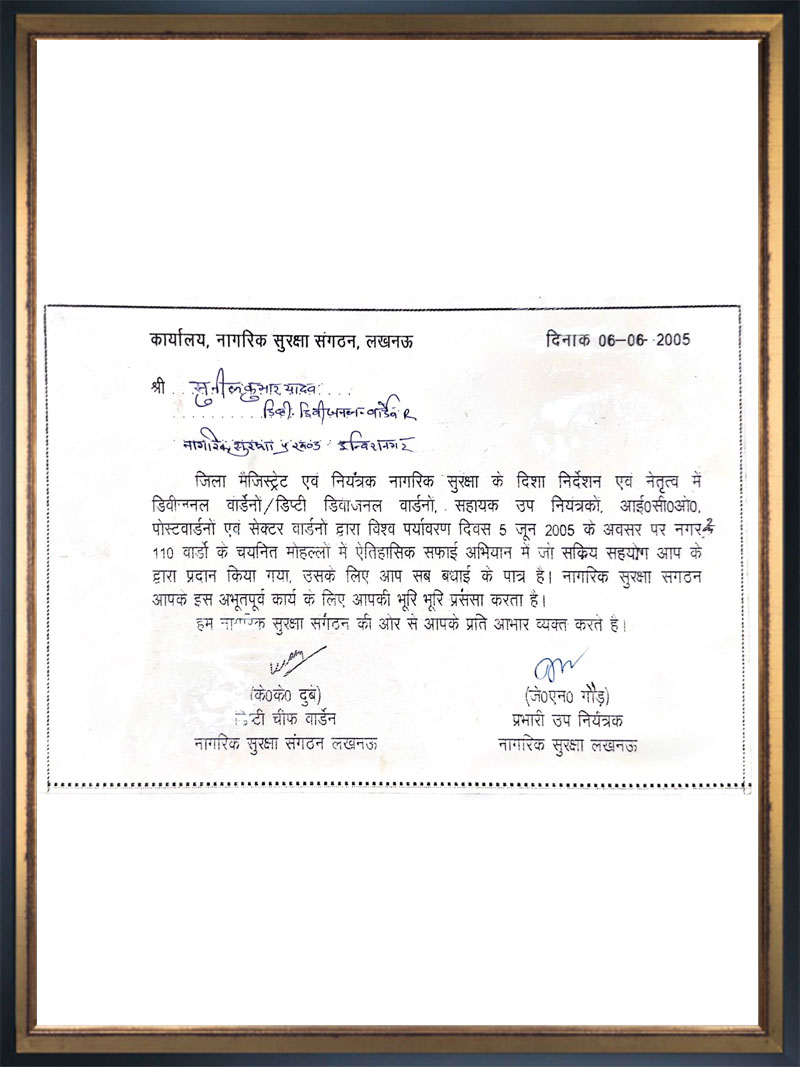 कार्यालय, नागरिक सुरक्षा संगठन, लखनऊ दिनाक 06-06-2005
श्री सुनील कुमार यादव
डिप्टी डिवीजनल वार्डेन R
नागरिक सुरक्षा प्रखण्ड इन्दिरानगर
जिला मैजिस्ट्रेट एवं नियंत्रक नागरिक सुरक्षा के दिशा निर्देशन एवं नेतृत्व में
डिवीजनल वार्डेनों/डिप्टी डिवाजनल वार्डनों, सहायक उप नियत्रकों, आई0सी0ओ0,
पोस्टवार्डनो एवं सेक्टर वार्डनो द्वारा विश्व पर्यावरण दिवस 5 जून 2005 के अवसर पर नगर के
110 वार्डो के चयनित मोहल्लों में ऐतिहासिक सफाई अभियान में जो सक्रिय सहयोग आप के
द्वारा प्रदान किया गया, उसके लिए आप सब बधाई के पात्र है। नागरिक सुरक्षा सगठन
आपके इस अभूतपूर्व कार्य के लिए आपकी भूरि भूरि प्रसंसा करता है।
हम नागरिक सुरक्षा संगठन की ओर से आपके प्रति आभार व्यक्त करते है।
(के0के0 दुबे) (जे0एन0 गौड़)
डिप्टी चीफ वार्डेन प्रभारी उप नियंत्रक
नागरिक सुरक्षा संगठन लखनऊ नागरिक सुरक्षा लखनऊ